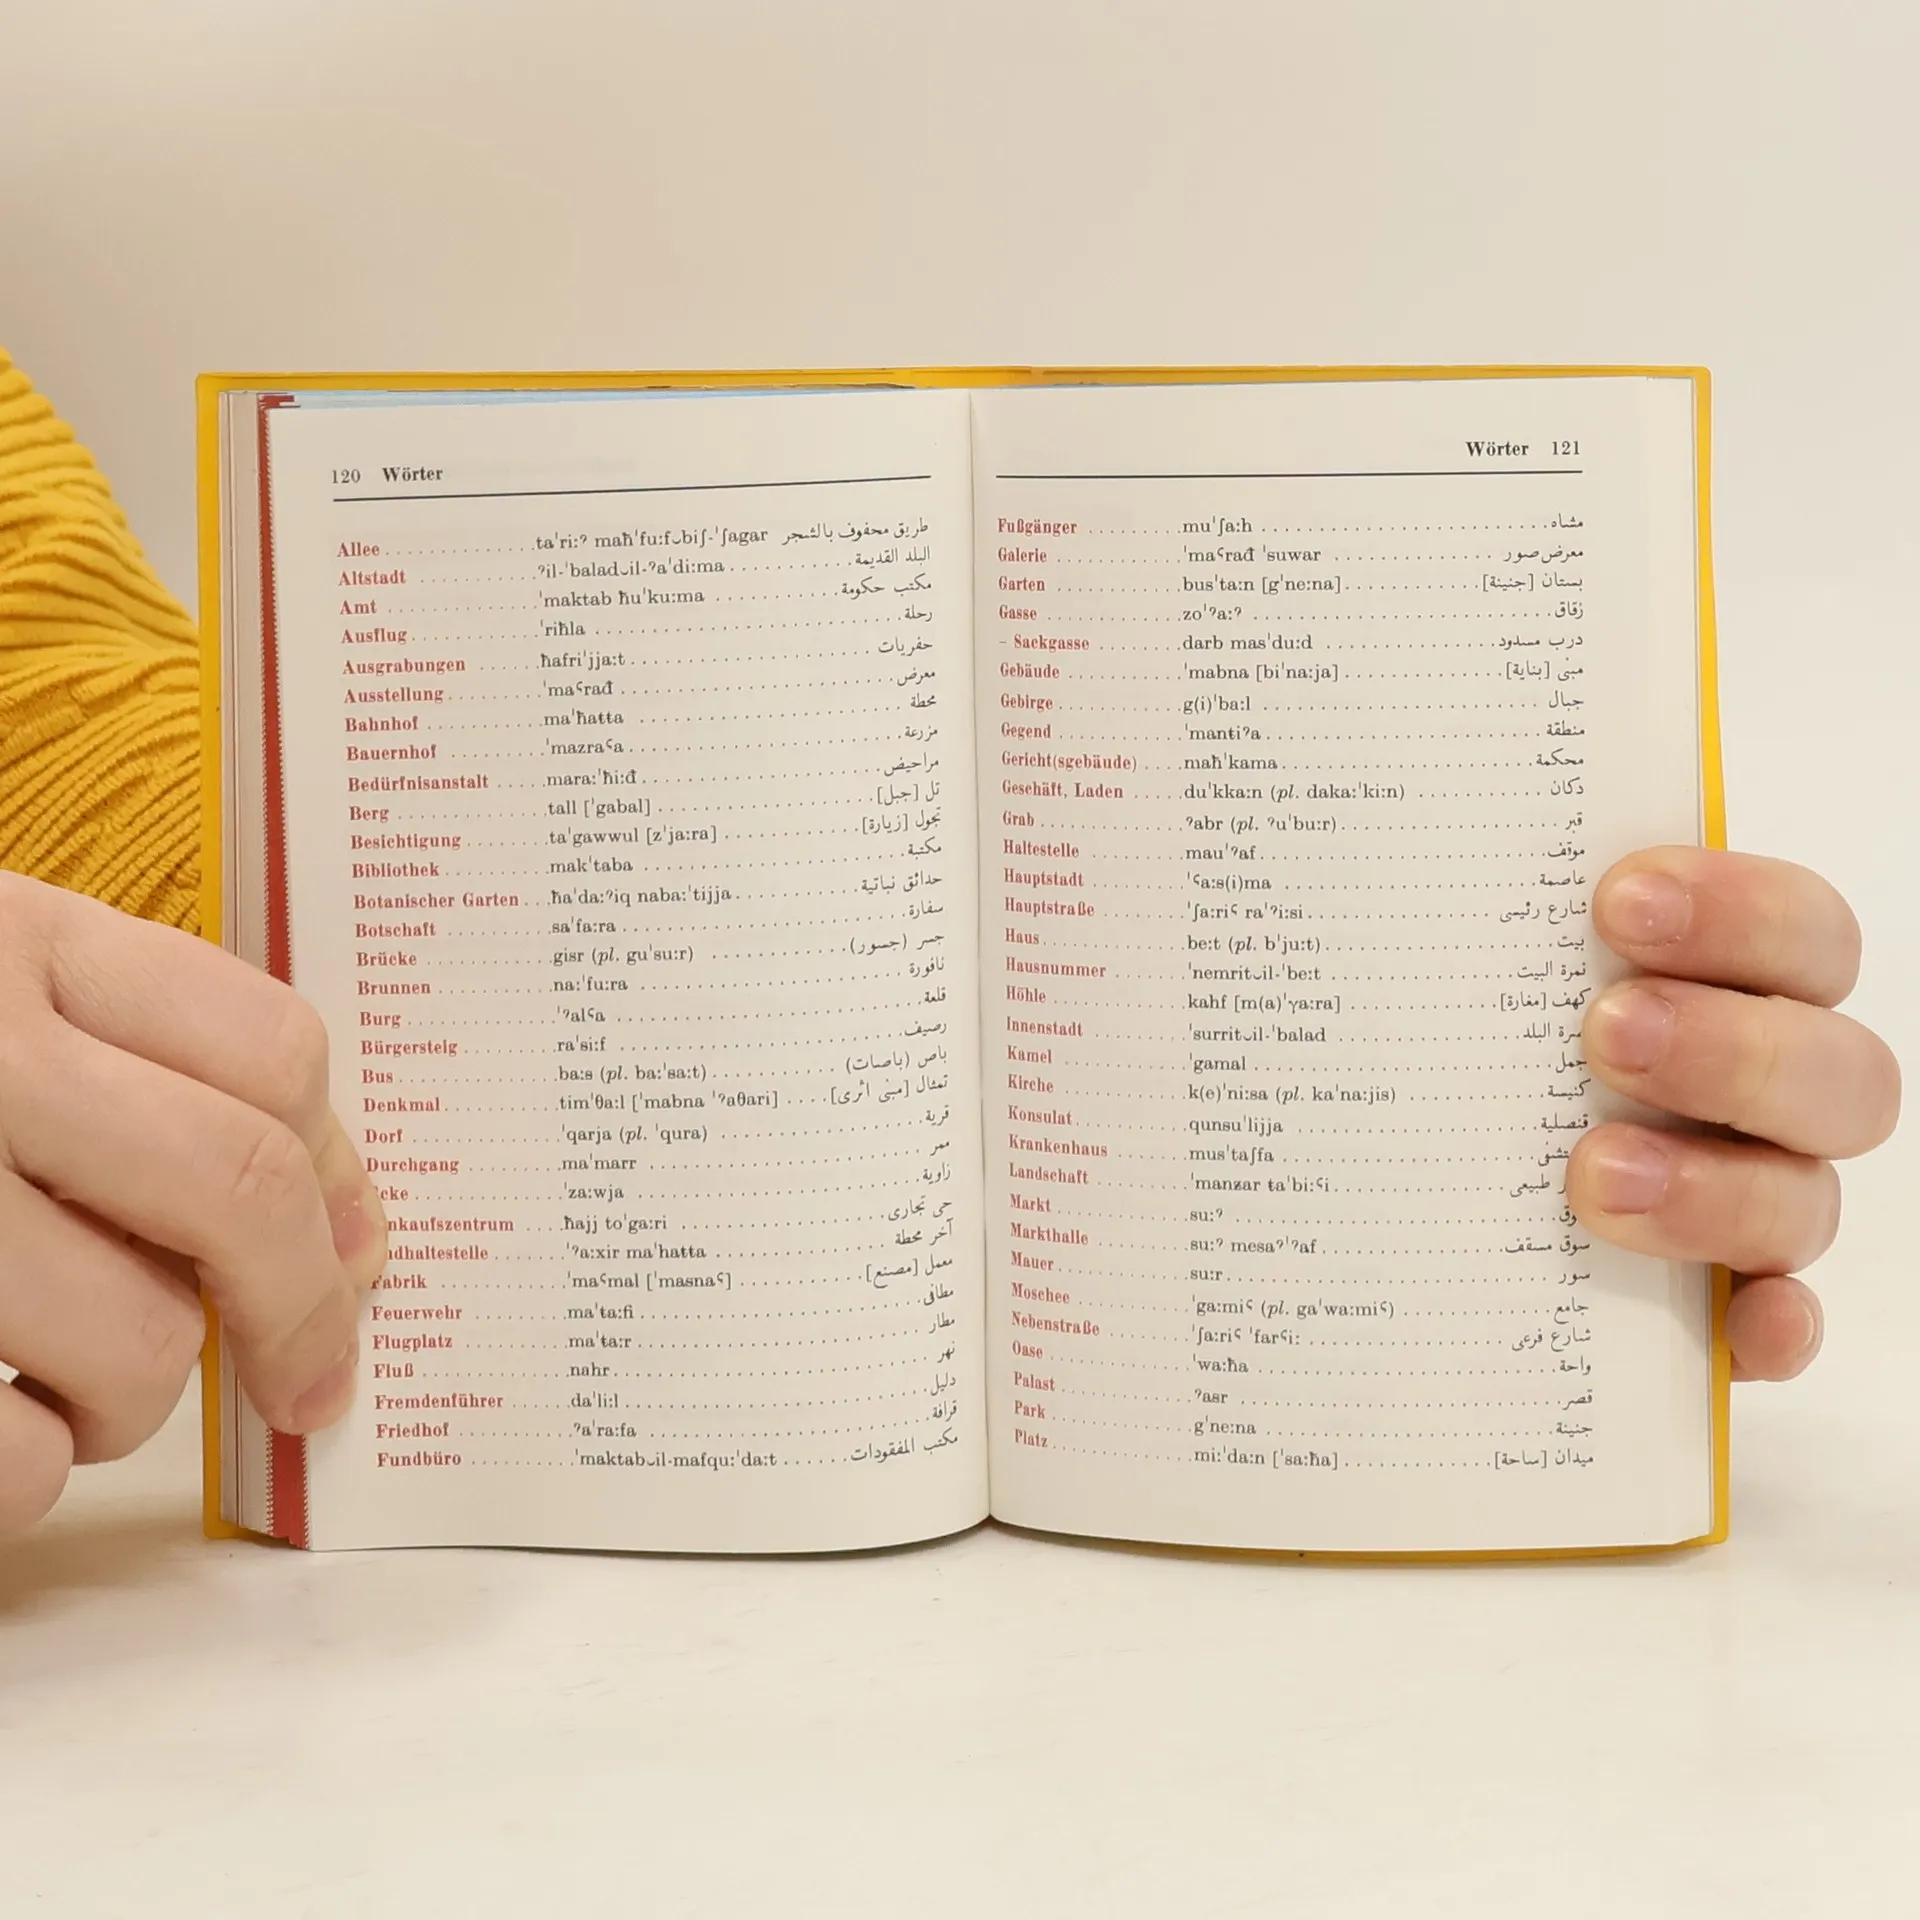 120 Wörter
Allee . . . . . . . . . . . . . . ta'ri:ˀ maħ'fu:f‿biʃ-'ʃagar طريق محفوف بالشجر
Altstadt . . . . . . . . . . . ˀil-'balad‿il-ˀa'di:ma . . . . . . . . . . البلد القديمة
Amt . . . . . . . . . . . . . . 'maktab ħu'ku:ma . . . . . . . . . . . مكتب حكومة
Ausflug . . . . . . . . . . . 'riħla . . . . . . . . . . رحلة
Ausgrabungen . . . . . . ħafri'jja:t . . . . . . . . . . حفريات
Ausstellung . . . . . . . . 'maˤrađ . . . . . . . . . . معرض
Bahnhof . . . . . . . . . . ma'ħatta . . . . . . . . . . محطة
Bauernhof . . . . . . . . 'mazraˤa . . . . . . . . . . مزرعة
Bedürfnisanstalt . . . . . mara:'ħi:đ . . . . . . . . . . مراحيض
Berg . . . . . . . . . . . . . tall ['gabal] . . . . . . . . . . تل [جبل]
Besichtigung . . . . . . . ta'gawwul [z'ja:ra] . . . . . . . . . . تجول [زيارة]
Bibliothek . . . . . . . . . mak'taba . . . . . . . . . . مكتبة
Botanischer Garten . . . ħa'da:ˀiq naba:'tijja . . . . . . . . . . حدائق نباتية
Botschaft . . . . . . . . . sa'fa:ra . . . . . . . . . . سفارة
Brücke . . . . . . . . . . . gisr (pl. gu'su:r) . . . . . . . . . . جسر (جسور)
Brunnen . . . . . . . . . . na:'fu:ra . . . . . . . . . . نافورة
Burg . . . . . . . . . . . . 'ˀalˤa . . . . . . . . . . قلعة
Bürgersteig . . . . . . . . ra'si:f . . . . . . . . . . رصيف
Bus . . . . . . . . . . . . . ba:s (pl. ba:'sa:t) . . . . . . . . . . باص (باصات)
Denkmal . . . . . . . . . . tim'θa:l ['mabna 'ˀaθari] . . . . تمثال [مبنى اثرى]
Dorf . . . . . . . . . . . . 'qarja (pl. 'qura) . . . . . . . . . . قرية
Durchgang . . . . . . . . ma'marr . . . . . . . . . . ممر
cke . . . . . . . . . . . . 'za:wja . . . . . . . . . . زاوية
nkaufszentrum . . . . ħajj to'ga:ri . . . . . . . . . . حى تجارى
dhaltestelle . . . . . . . 'ˀa:xir ma'hatta . . . . . . . . . . آخر محطة
Fabrik . . . . . . . . . . 'maˤmal ['masnaˤ] . . . . . . . . . . معمل [مصنع]
Feuerwehr . . . . . . . . ma'ta:fi . . . . . . . . . . مطافى
Flugplatz . . . . . . . . . ma'ta:r . . . . . . . . . . مطار
Fluß . . . . . . . . . . . . nahr . . . . . . . . . . نهر
Fremdenführer . . . . . . da'li:l . . . . . . . . . . دليل
Friedhof . . . . . . . . . ˀa'ra:fa . . . . . . . . . . قرافة
Fundbüro . . . . . . . . . 'maktab‿il-mafqu:'da:t . . . . . . مكتب المفقودات
Wörter 121
Fußgänger . . . . . . . . mu'ʃa:h . . . . . . . . . . مشاه
Galerie . . . . . . . . . . 'maˤrađ 'suwar . . . . . . . . . . معرض صور
Garten . . . . . . . . . . bus'ta:n [g'ne:na] . . . . . . . . . . بستان [جنينة]
Gasse . . . . . . . . . . . zo'ˀa:ˀ . . . . . . . . . . زقاق
– Sackgasse . . . . . . . darb mas'du:d . . . . . . . . . . درب مسدود
Gebäude . . . . . . . . . 'mabna [bi'na:ja] . . . . . . . . . . مبنى [بناية]
Gebirge . . . . . . . . . . g(i)'ba:l . . . . . . . . . . جبال
Gegend . . . . . . . . . . 'mantiˀa . . . . . . . . . . منطقة
Gericht(sgebäude) . . . . maħ'kama . . . . . . . . . . محكمة
Geschäft, Laden . . . . . du'kka:n (pl. daka:'ki:n) . . . . . . . . . . دكان
Grab . . . . . . . . . . . . ˀabr (pl. ˀu'bu:r) . . . . . . . . . . قبر
Haltestelle . . . . . . . . mau'ˀaf . . . . . . . . . . موقف
Hauptstadt . . . . . . . . 'ˤa:s(i)ma . . . . . . . . . . عاصمة
Hauptstraße . . . . . . . 'ʃa:riˤ ra'ˀi:si . . . . . . . . . . شارع رئيسى
Haus . . . . . . . . . . . . be:t (pl. b'ju:t) . . . . . . . . . . بيت
Hausnummer . . . . . . 'nemrit‿il-'be:t . . . . . . . . . . نمرة البيت
Höhle . . . . . . . . . . . kahf [m(a)'γa:ra] . . . . . . . . . . كهف [مغارة]
Innenstadt . . . . . . . . 'surrit‿il-'balad . . . . . . . . . . سرة البلد
Kamel . . . . . . . . . . . 'gamal . . . . . . . . . . جمل
Kirche . . . . . . . . . . . k(e)'ni:sa (pl. ka'na:jis) . . . . . . . . . . كنيسة
Konsulat . . . . . . . . . qunsu'lijja . . . . . . . . . . قنصلية
Krankenhaus . . . . . . mus'taʃfa . . . . . . . . . .
Landschaft . . . . . . . . 'manzar ta'bi:ˤi . . . . . . . . . . طبيعى
Markt . . . . . . . . . . . su:ˀ . . . . . . . . . .
Markthalle . . . . . . . . su:ˀ mesaˀ'ˀaf . . . . . . . . . . سوق مسقف
Mauer . . . . . . . . . . . su:r . . . . . . . . . . سور
Moschee . . . . . . . . . 'ga:miˤ (pl. ga'wa:miˤ) . . . . . . . . . . جامع
Nebenstraße . . . . . . . 'ʃa:riˤ 'farˤi: . . . . . . . . . . شارع فرعى
Oase . . . . . . . . . . . . 'wa:ħa . . . . . . . . . . واحة
Palast . . . . . . . . . . . ˀasr . . . . . . . . . . قصر
Park . . . . . . . . . . . . g'ne:na . . . . . . . . . . جنينة
Platz . . . . . . . . . . . . mi:'da:n ['sa:ħa] . . . . . . . . . . ميدان [ساحة]